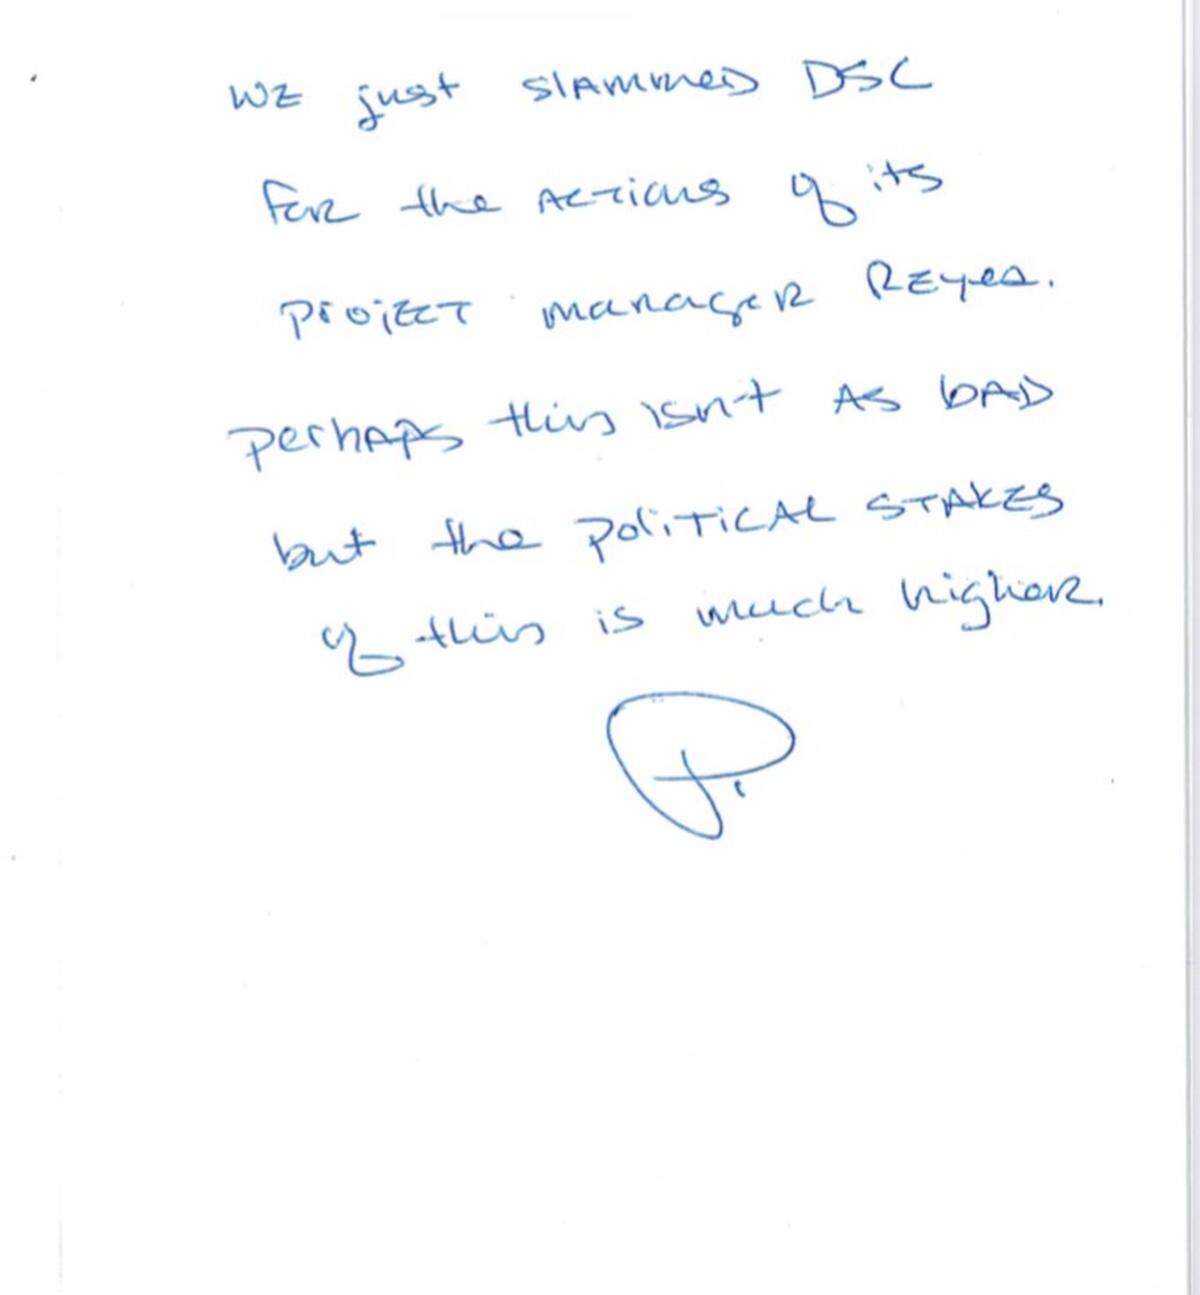 WE just slammed DSC
for the Actions of its
project manager Reyes.
perhaps this isn't AS bAD
but the political STAKES
of this is much higher.
P.